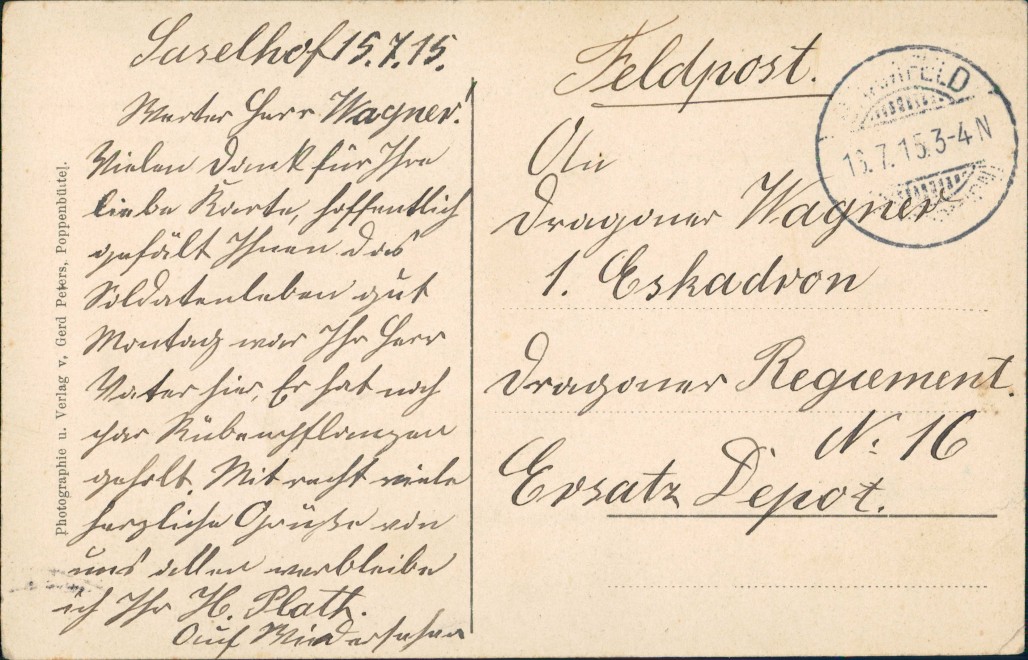 Saselhof 15.7.15.
Werter Herr Wagner!
Vielen Dank für Ihre
liebe Karte, hoffentlich
gefält Ihnen das
Soldatenleben gut
Montag war Ihr Herr
Vater hier, Er hat noch
paar Rübenpflanzen
geholt. Mit recht viele
herzliche Grüße von
uns allen verbleibe
ich Ihr H. Plath.
Auf Wiedersehen
Photographie u. Verlag v. Gerd Peters, Poppenbüttel.
Feldpost.
16.7.15.3-4 N
An
Dragoner Wagner
1. Eskadron
Dragoner Regiement.
No. 16
Ersatz Depot.